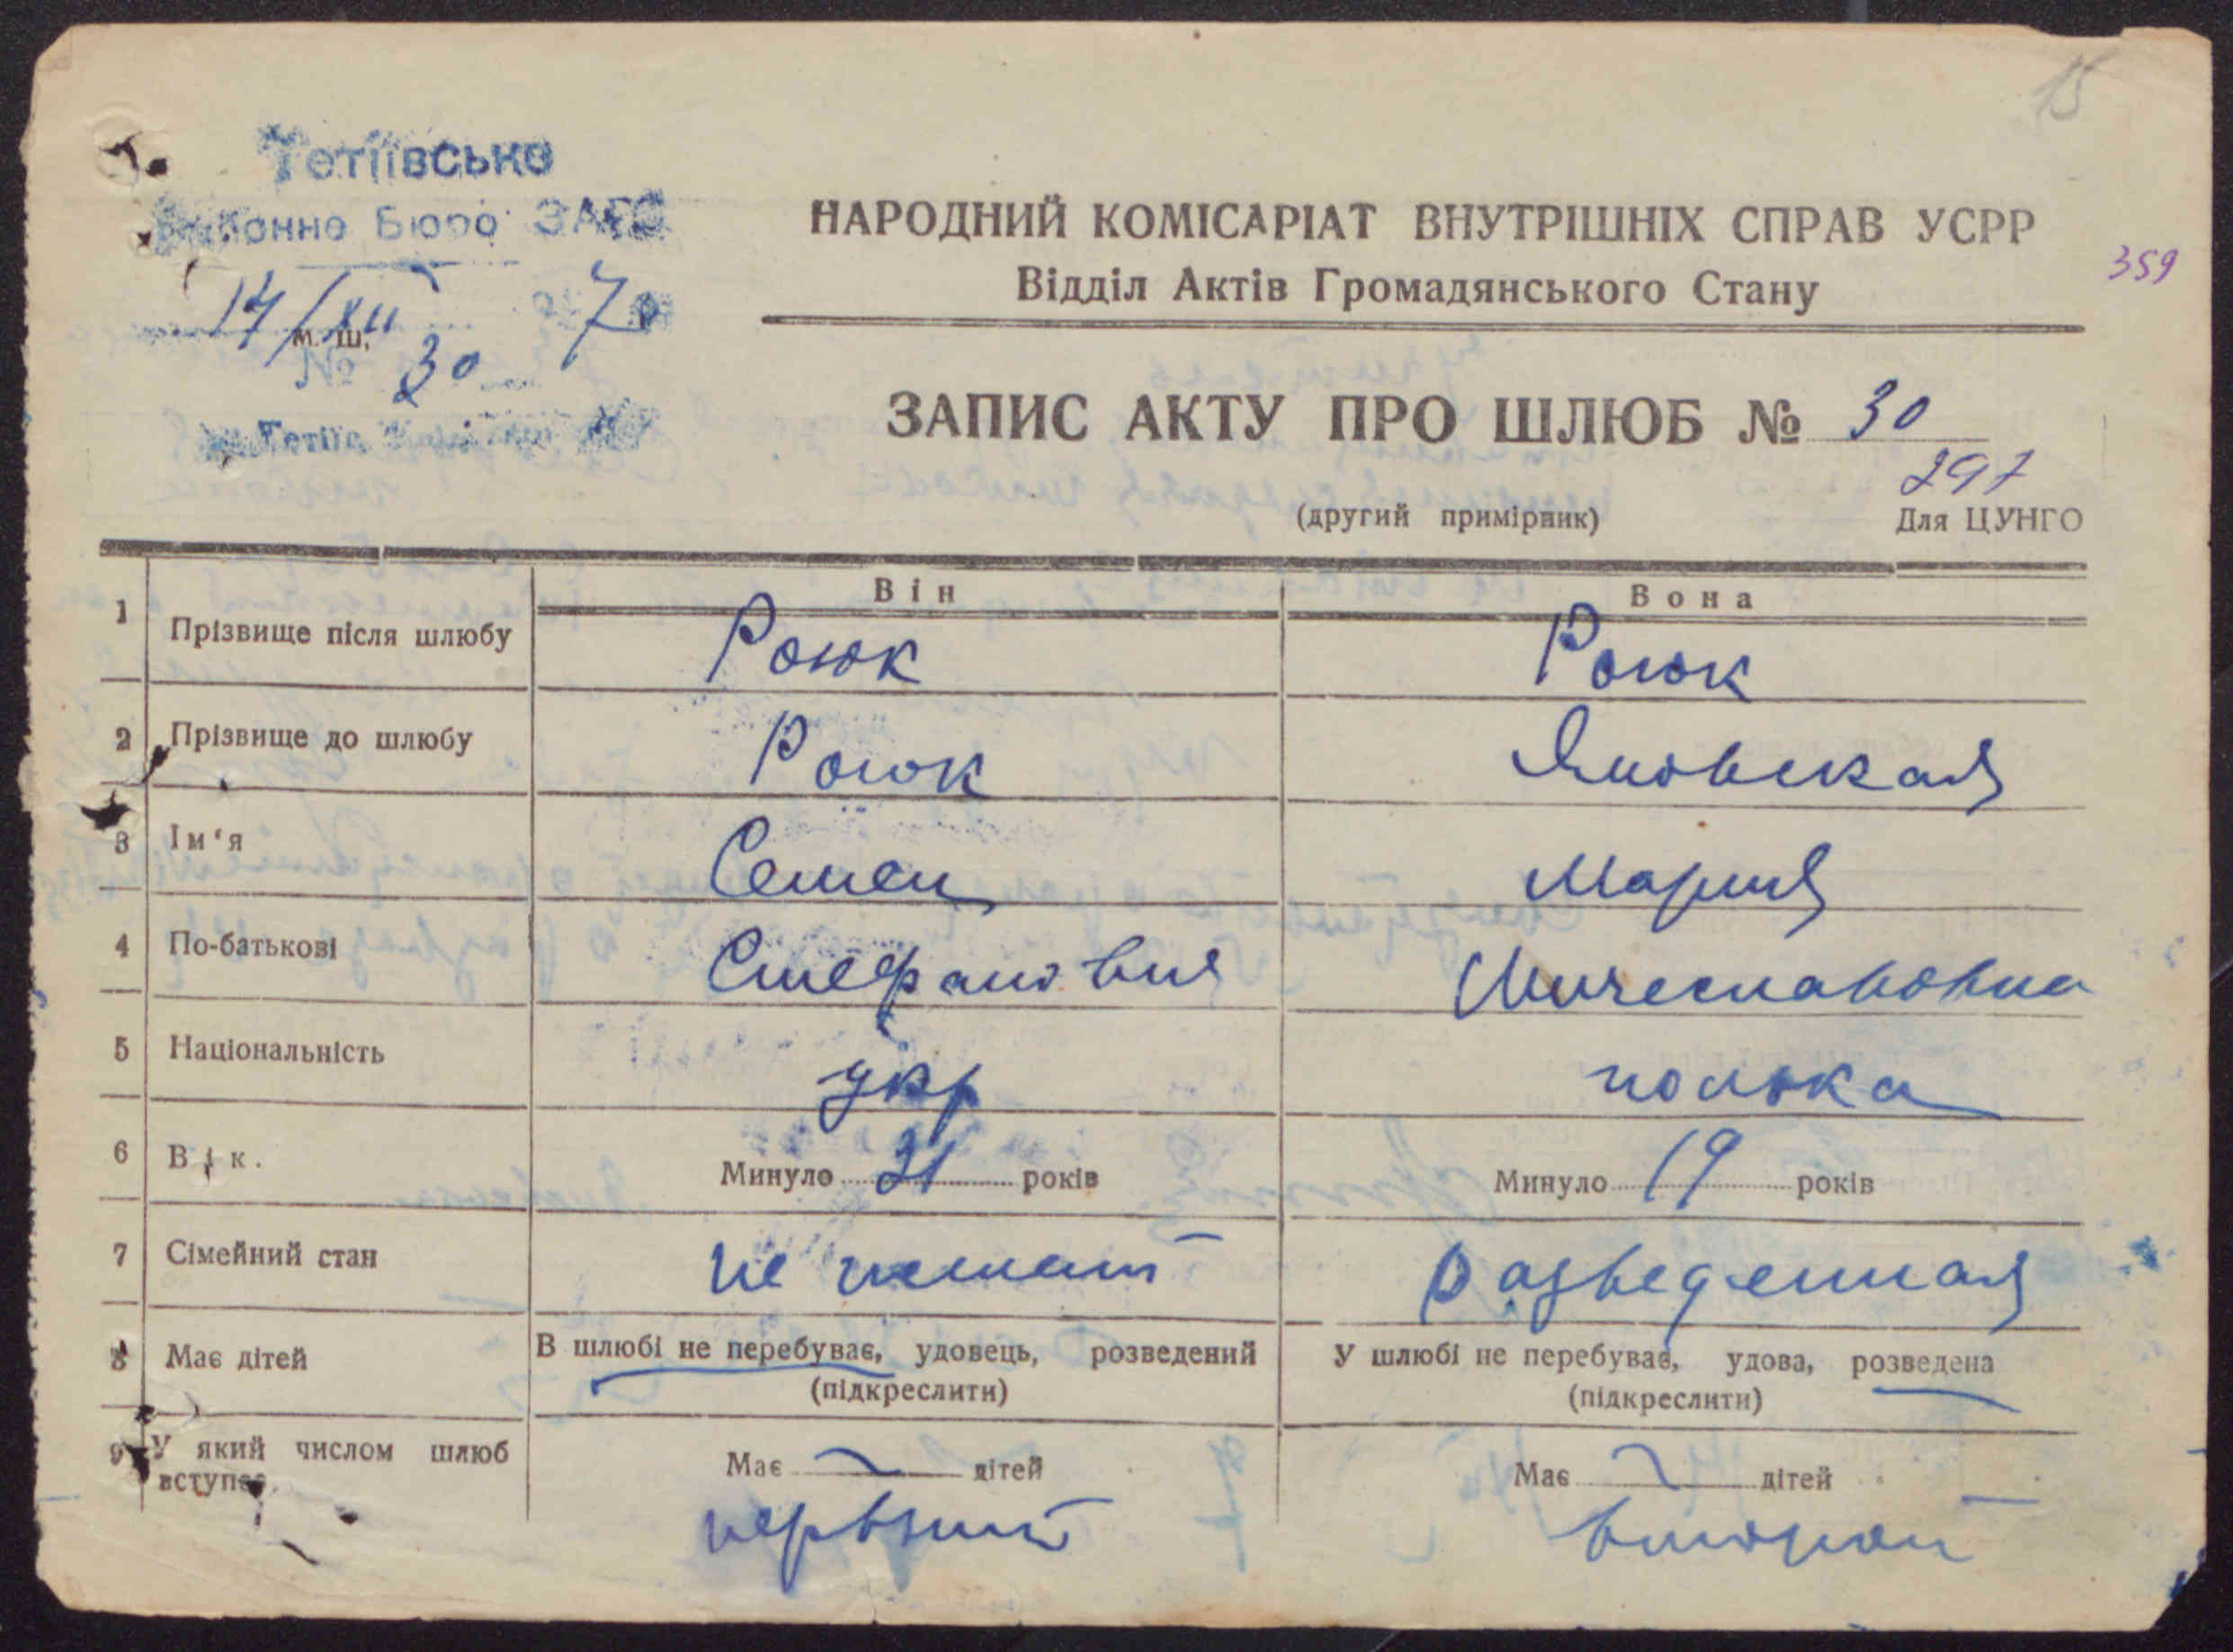 15
Тетіївське
Районне Бюро ЗАГС
НАРОДНИЙ КОМІСАРІАТ ВНУТРІШНІХ СПРАВ УСРР
359
Відділ Актів Громадянського Стану
14/XII
м. ш.
№ 30
ЗАПИС АКТУ ПРО ШЛЮБ № 30
297
(другий примірник) Для ЦУНГО
Він Вона
1 Прізвище після шлюбу Роюк Роюк
2 Прізвище до шлюбу Роюк Яновская
3 Ім'я Семен Мария
4 По-батькові Стефанович Мичеславовна
5 Національність укр полька
6 Вік. Минуло 21 років Минуло 19 років
7 Сімейний стан не женат разведенная
8 Має дітей В шлюбі не перебуває, удовець, розведений У шлюбі не перебуває, удова, розведена
(підкреслити) (підкреслити)
9 У який числом шлюб вступає. Має дітей Має дітей
первый второй